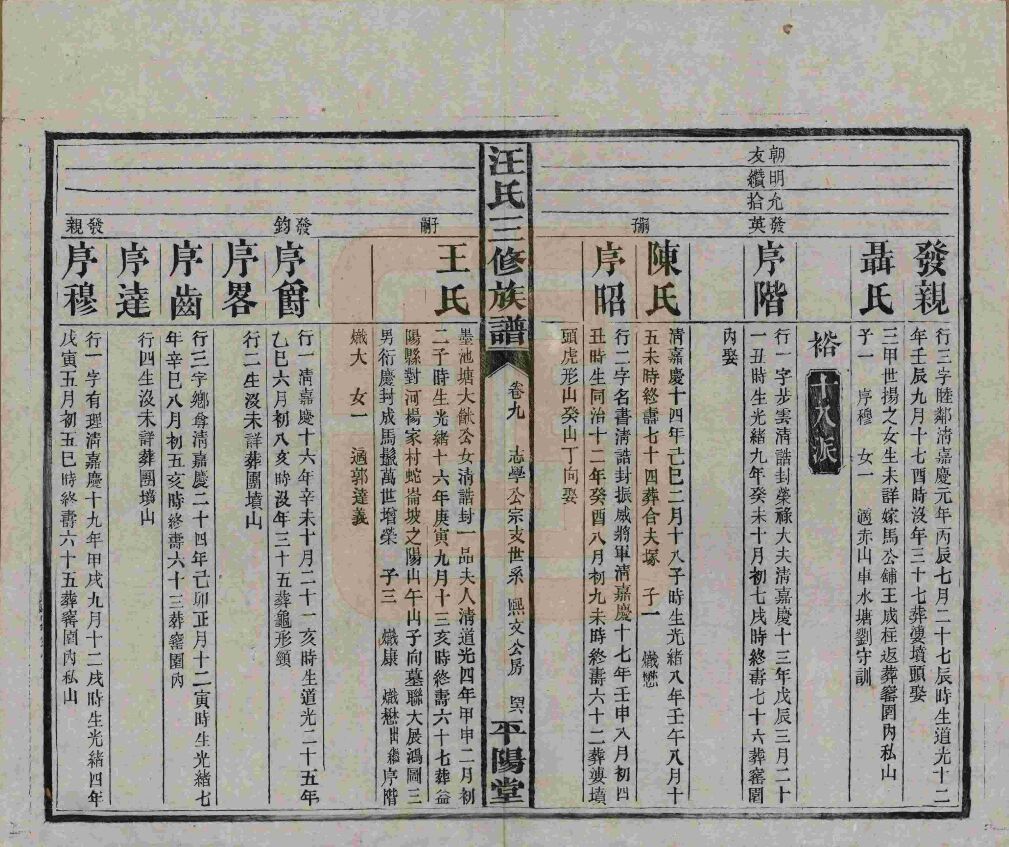 朝明允發
友纘拾英
發親
行三字睦鄰清嘉慶元年丙辰七月二十七辰時生道光十二
年壬辰九月十七酉時沒年三十七葬蔞墳頭娶
聶氏
三甲世揚之女生未詳嫁馬公鋪王成柱返葬窰園內私山
子一 序穆 女一 適赤山車水塘劉守訓
裕 十八派
序階
行一字步雲清誥封榮祿大夫清嘉慶十三年戊辰三月二十
一丑時生光緒九年癸未十月初七戌時終壽七十六葬窰園
內娶
陳氏
清嘉慶十四年己巳二月十八子時生光緒八年壬午八月十
五未時終壽七十四葬合夫塚 子一 熾懋
序昭
行二字名書清誥封振威將軍清嘉慶十七年壬申八月初四
丑時生同治十二年癸酉八月初九未時終壽六十二葬蔞墳
頭虎形山癸山丁向娶
汪氏三修族譜 卷九 志學公宗支世系 熙文公房 平陽堂
王氏
墨池塘大猷公女清誥封一品夫人清道光四年甲申二月初
二子時生光緒十六年庚寅九月十三亥時終壽六十七葬益
陽縣對河楊家村蛇崙坡之陽山午山子向墓聯大展鴻圖三
男衍慶封成馬鬛萬世增榮 子三 熾康 熾懋出繼序階
熾大 女一 適郭達義
發鈞
序爵
行一清嘉慶十六年辛未十月二十一亥時生道光二十五年
乙巳六月初八亥時沒年三十五葬龜形頸
序畧
行二生沒未詳葬團墳山
序齒
行三字鄉尊清嘉慶二十四年己卯正月十二寅時生光緒七
年辛巳八月初五亥時終壽六十三葬窰園內
序達
行四生沒未詳葬團墳山
發親
序穆
行一字有理清嘉慶十九年甲戌九月十二戌時生光緒四年
戊寅五月初五巳時終壽六十五葬窰園內私山